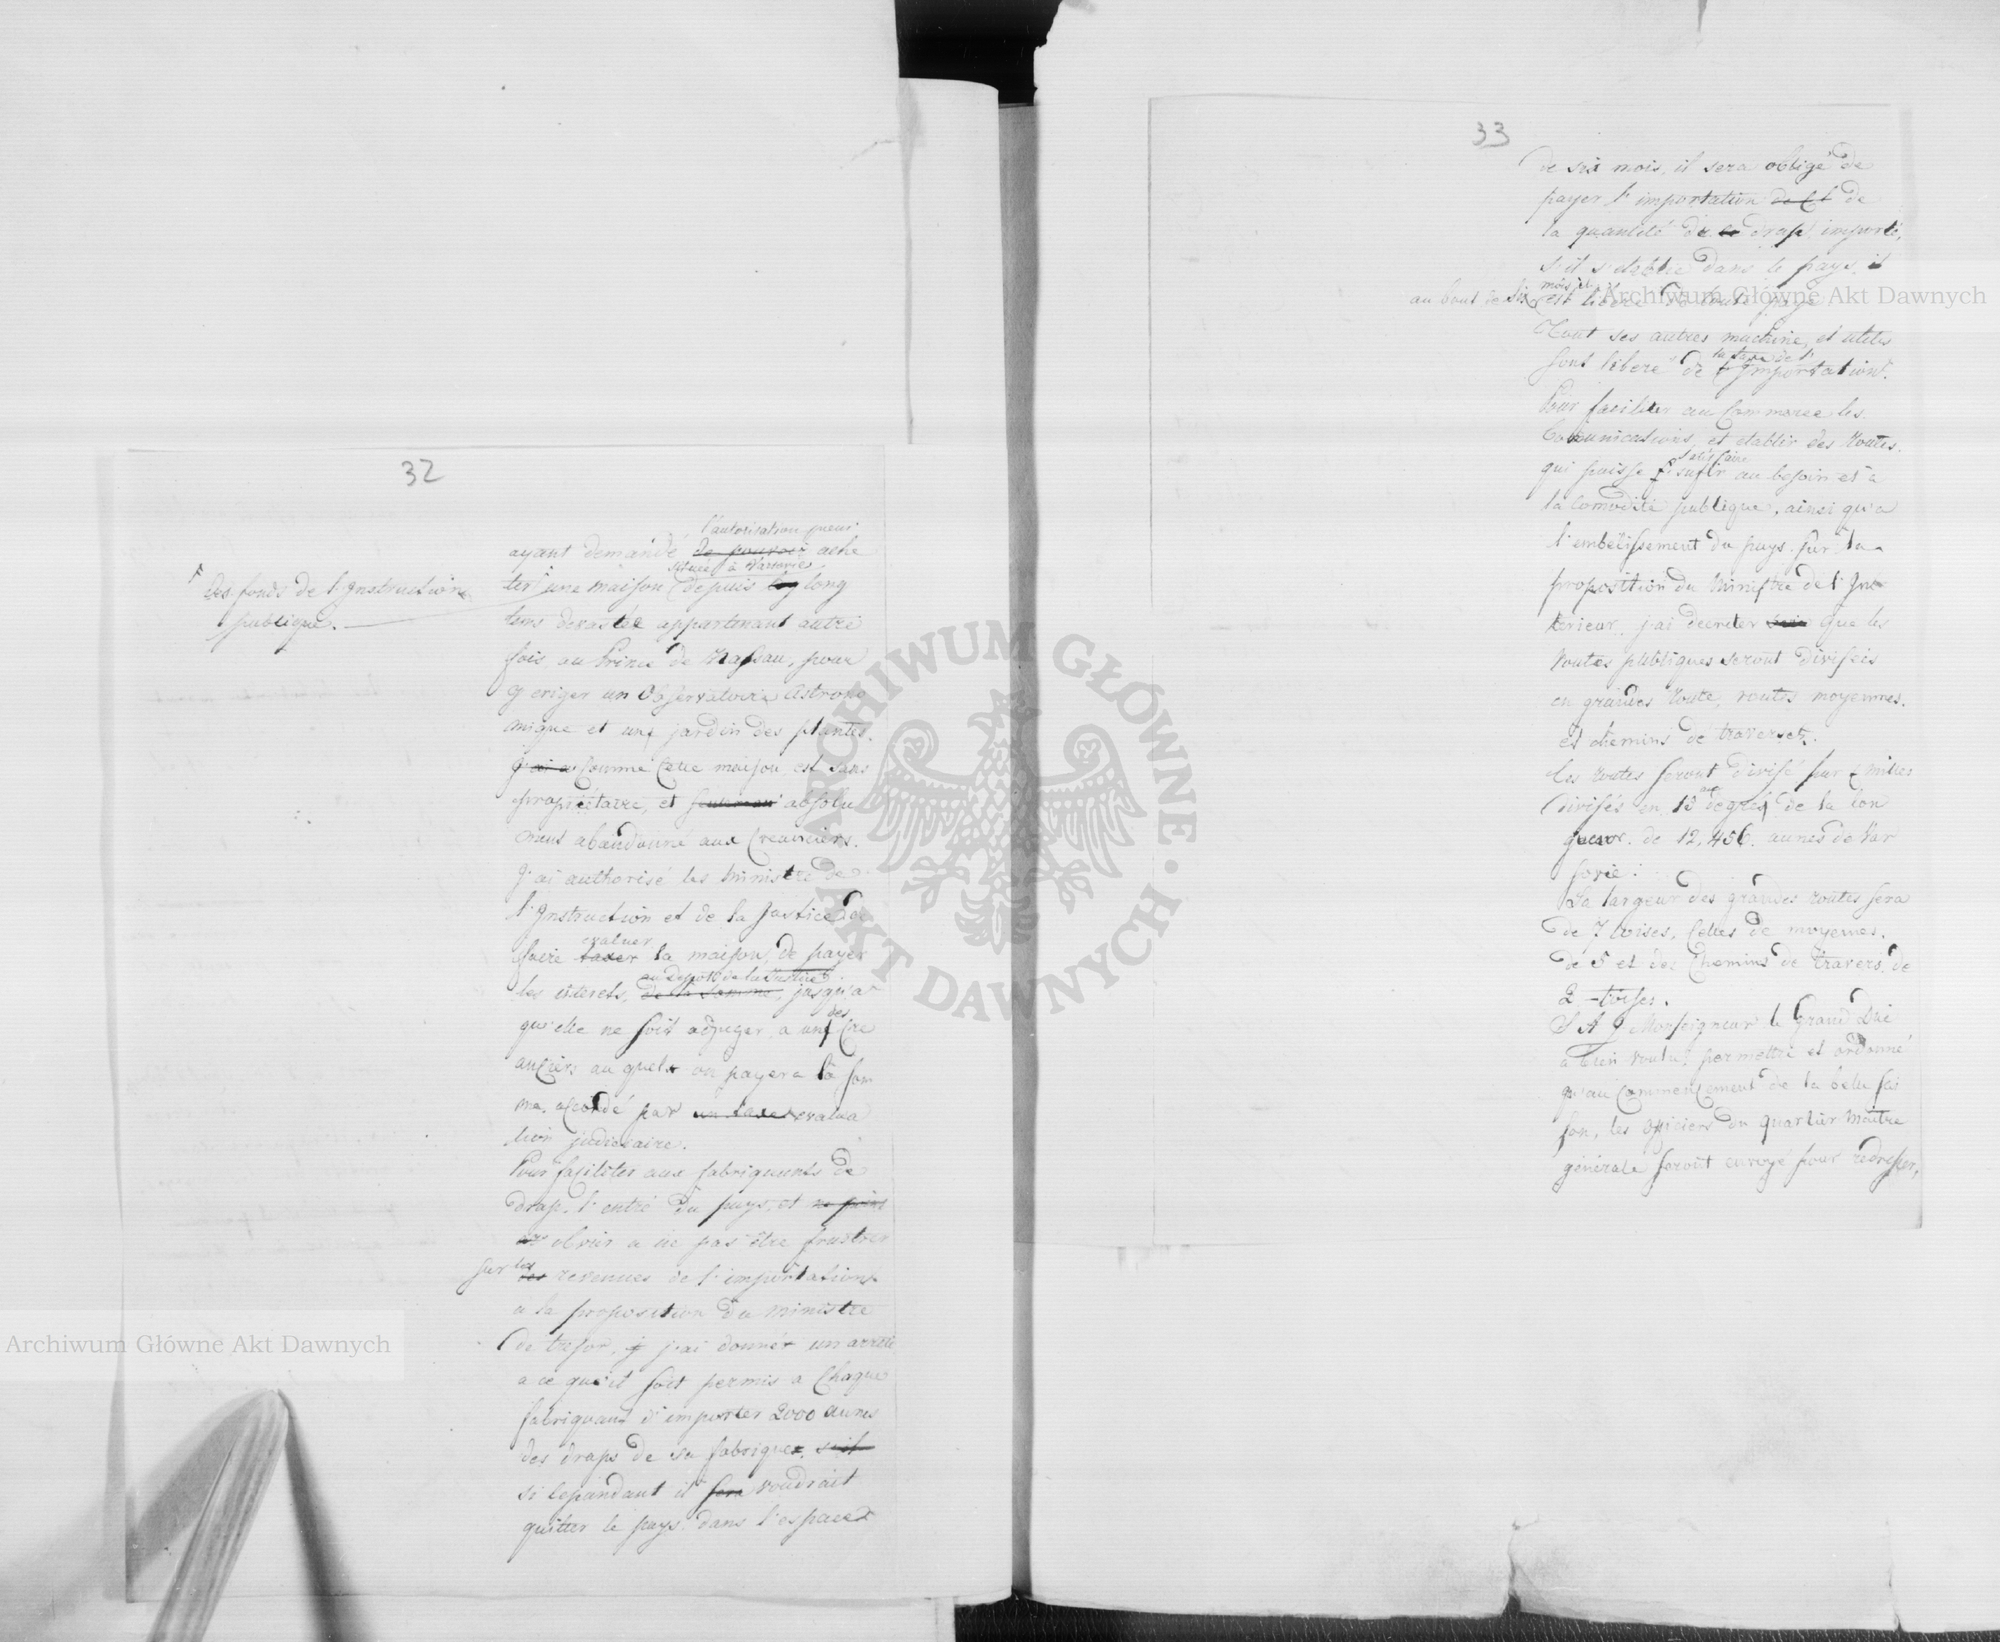 32
l'autorisation
ayant demandé de pouvoir ache
située à Varsovie
ter une maison depuis log long
des fonds de l'Instruction
publique.
tems devastée appartenant autre
fois, au Prince de Nassau, pour
y eriger un Observatoire Astrono
mique et un jardin des plantes.
J'ai a Comme Cette maison est sans
propriétaire, et absolu
ment abandonné aux Creanciers.
J'ai authorisé les Ministre de
l'Instruction et de la Justice de
evaluer
faire taxer la maison, de payer
au depôt de la Justice
les interets, de la somme, jusqu'a
des
qu'elle ne soit adjuger, a un Cre
anciers au quel on payera la som
me. acordé par un taxe evalua
tion judiciaire.
Pour faciliter aux fabriquants de
drap. l'entré du pays. et ne point
a ne pas être frustrer
sur les
des revenues de l'importation
a la proposition du ministre
de tresor, j j'ai donner un arreté
a ce qu'il soit permis a Chaque
fabriquant d'importer 2000 aunes
des draps de sa fabrique. s'il
si cependant il sera voudrait
quitter le pays. dans l'espace
33
de six mois, il sera obligé de
payer l'importation de Ct de
la quantité de ce drap. importé,
s'il s'etablie dans le pays, il
au bout de six mois il
est libere de toute paye
Tout ses autres machine, et utiles
la taxe de l'
sont libere de l'Importation.
Pour faciliter au Commerce les
Comunications, et etablir des Routes.
satisfaire
qui puisse sufir au besoin et a
la Comodité publique, ainsi qu'a
l'embelissement du pays. sur la
proposition du Ministre de l'Int
terieur, j'ai decreter que les
Routes publiques seront divisés
en grandes Route, routes moyennes.
et chemins de traverse.
les Routes seront divisé par milles
divisés en 15 degrés de la lon
gueur. de 12,456. aunes de Var
sovie.
La largeur des grandes routes sera
de 7 toises. Celles de moyennes.
de 5 et des Chemins de travers. de
2 toises.
S A J Monseigneur le Grand Duc
a bien voulu permettre et ordonné
qu'au Commencement de la belle sai
son, les officiers du quartier Maitre
générale seront envoyé pour redresser,
Archiwum Główne Akt Dawnych
Archiwum Główne Akt Dawnych
ARCHIWUM GŁÓWNE · AKT DAWNYCH ·